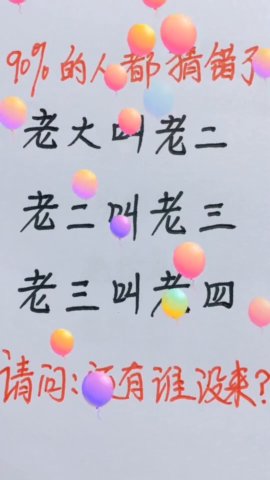 90%的人都猜错了
老大叫老二
老二叫老三
老三叫老四
请问:还有谁没来?